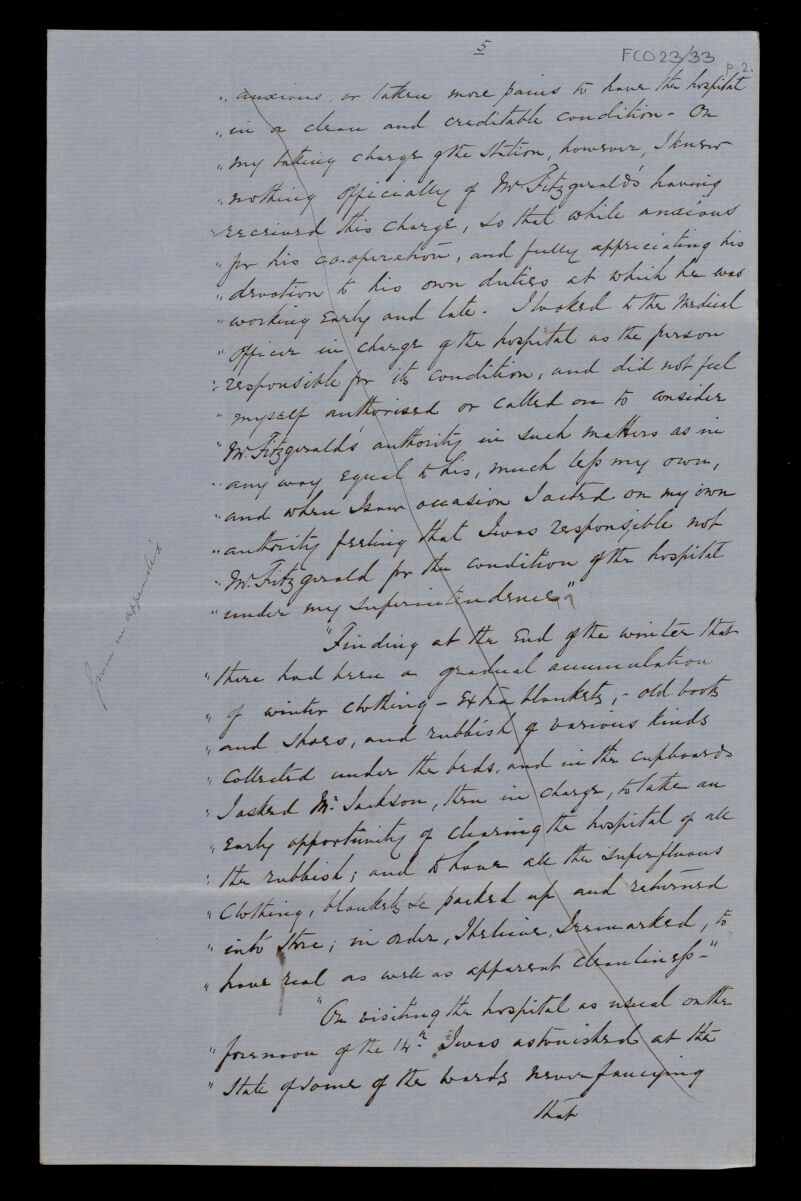 5
FCO 23/33
p. 2.
" anxious, or taken more pains to have the hospital
" in a clean and creditable condition - On
" my taking charge of the Station, however, I knew
" nothing officially of Mr. Fitzgerald's having
" received this charge, so that while anxious
" for his cooperation, and fully appreciating his
" devotion to his own duties at which he was
" working early and late. I looked to the Medical
" Officer in charge of the hospital as the person
" responsible for its condition, and did not feel
" myself authorised or called on to consider
" Mr. Fitzgerald's authority in such matters as in
" any way equal to his, much less my own,
" and when I saw occasion I acted on my own
" authority feeling that I was responsible not
" Mr. Fitzgerald for the condition of the hospital
" under my superintendence"
"Finding at the end of the winter that
" there had been a gradual accumulation
" of winter clothing - extra blankets, - old boots
" and shoes, and rubbish of various kinds
" collected under the beds, and in the cupboards
" I asked Mr. Jackson, then in charge, to take an
" early opportunity of clearing the hospital of all
" the rubbish; and to have all the superfluous
" Clothing, blankets &c packed up and returned
" into Store; in order, I believe, I remarked, to
" have real as well as apparent cleanliness -"
"On visiting the hospital as usual on the
" forenoon of the 14th. I was astonished at the
" state of some of the wards never fancying
that
given in appendix